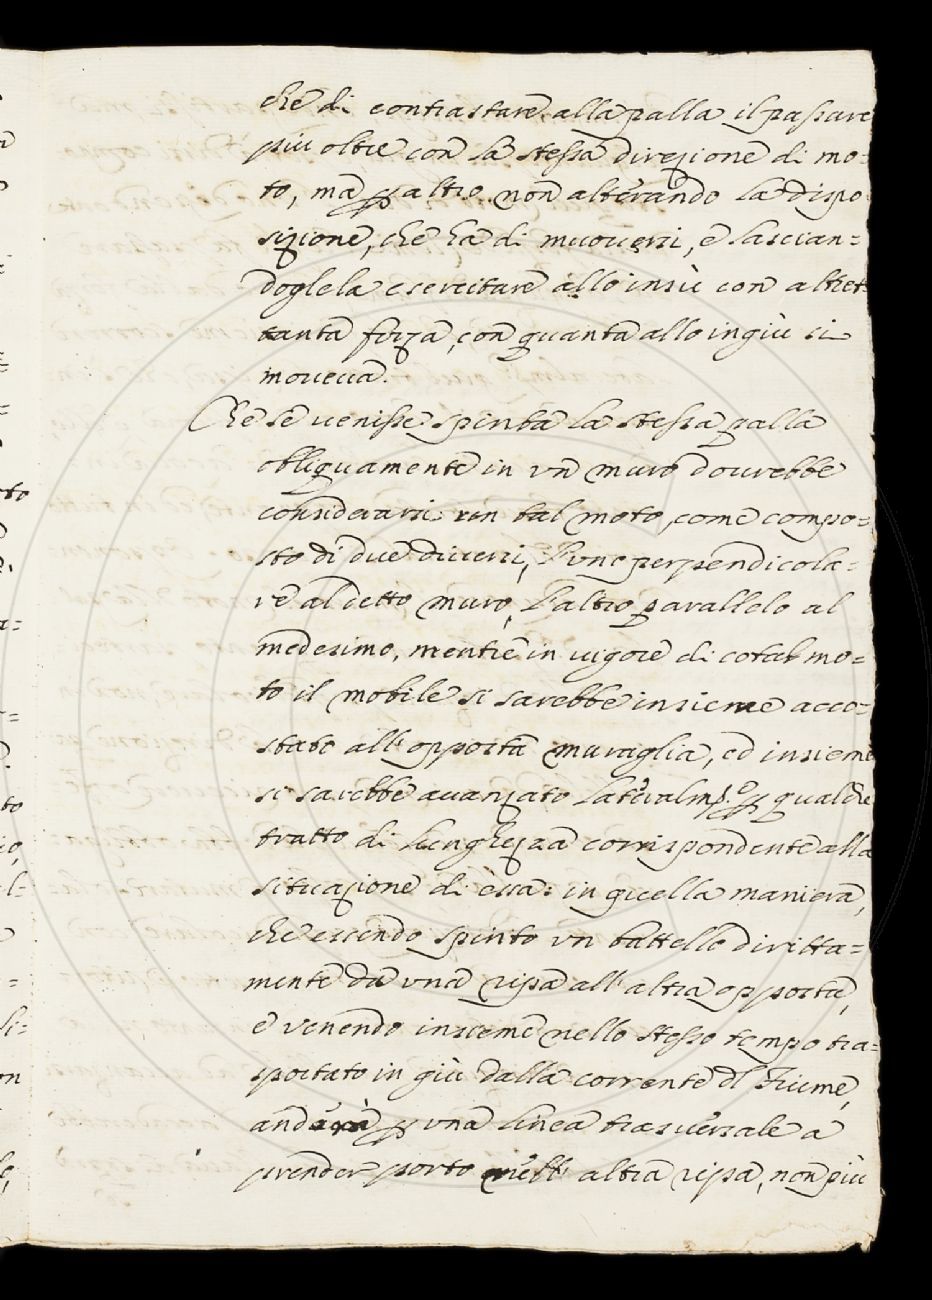 che di contrastare alla palla il passare
più oltre con la stessa direzione di mo=
to, ma p altro non alterando la dispo
sizione, che ha di muoversi, e lascian=
doglela esercitare allo insù con altret
tanta forza, con quanta allo ingiù si
moveva.
Che se venisse spinta la stessa palla
obliquamente in vn muro dovrebbe
considerarsi vn tal moto, come compo=
sto di due diversi, l'uno perpendicola=
re al detto muro, l'altro parallelo al
medesimo, mentre in vigore di cotal mo=
to il mobile si sarebbe insieme acco=
stato all'opposta muraglia, ed insieme
si sarebbe avanzato lateralmte p qualche
tratto di lunghezza corrispondente alla
situazione di essa: in quella maniera,
che essendo spinto vn battello diritta=
mente da vna ripa all'altra opposta,
e venendo insieme nello stesso tempo tra=
sportato in giù dalla corrente dl Fiume,
andarà p vna linea trasversale a
prender porto nell'altra ripa, non più